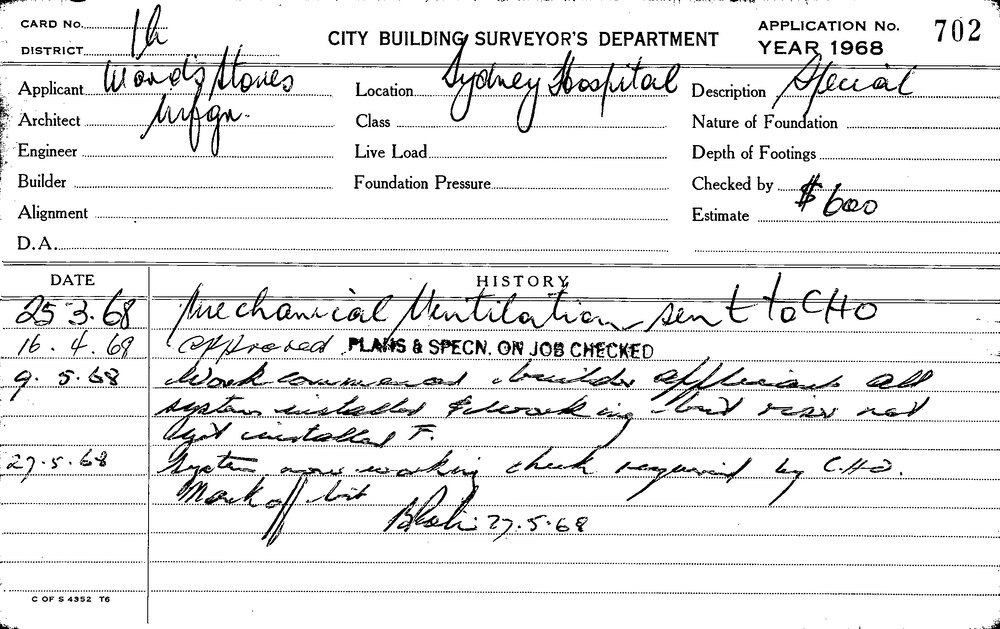 CARD No. 1h
DISTRICT
CITY BUILDING SURVEYOR'S DEPARTMENT
APPLICATION No. 702
YEAR 1968
Applicant Wards Stoves Mfgn.
Location Sydney Hospital
Description Special
Architect
Class
Nature of Foundation
Engineer
Live Load
Depth of Footings
Builder
Foundation Pressure
Checked by
Alignment
Estimate $600
D.A.
DATE
HISTORY
25 3.68 Mechanical Ventilation sent to CHO
16.4.68 approved PLANS & SPECN. ON JOB CHECKED
9.5.68 Work commenced builder applicant all
system installed & working but riser not
yet installed F.
27.5.68 System now working check required by C.H.O.
Mark off
27.5.68
C OF S 4352 T6